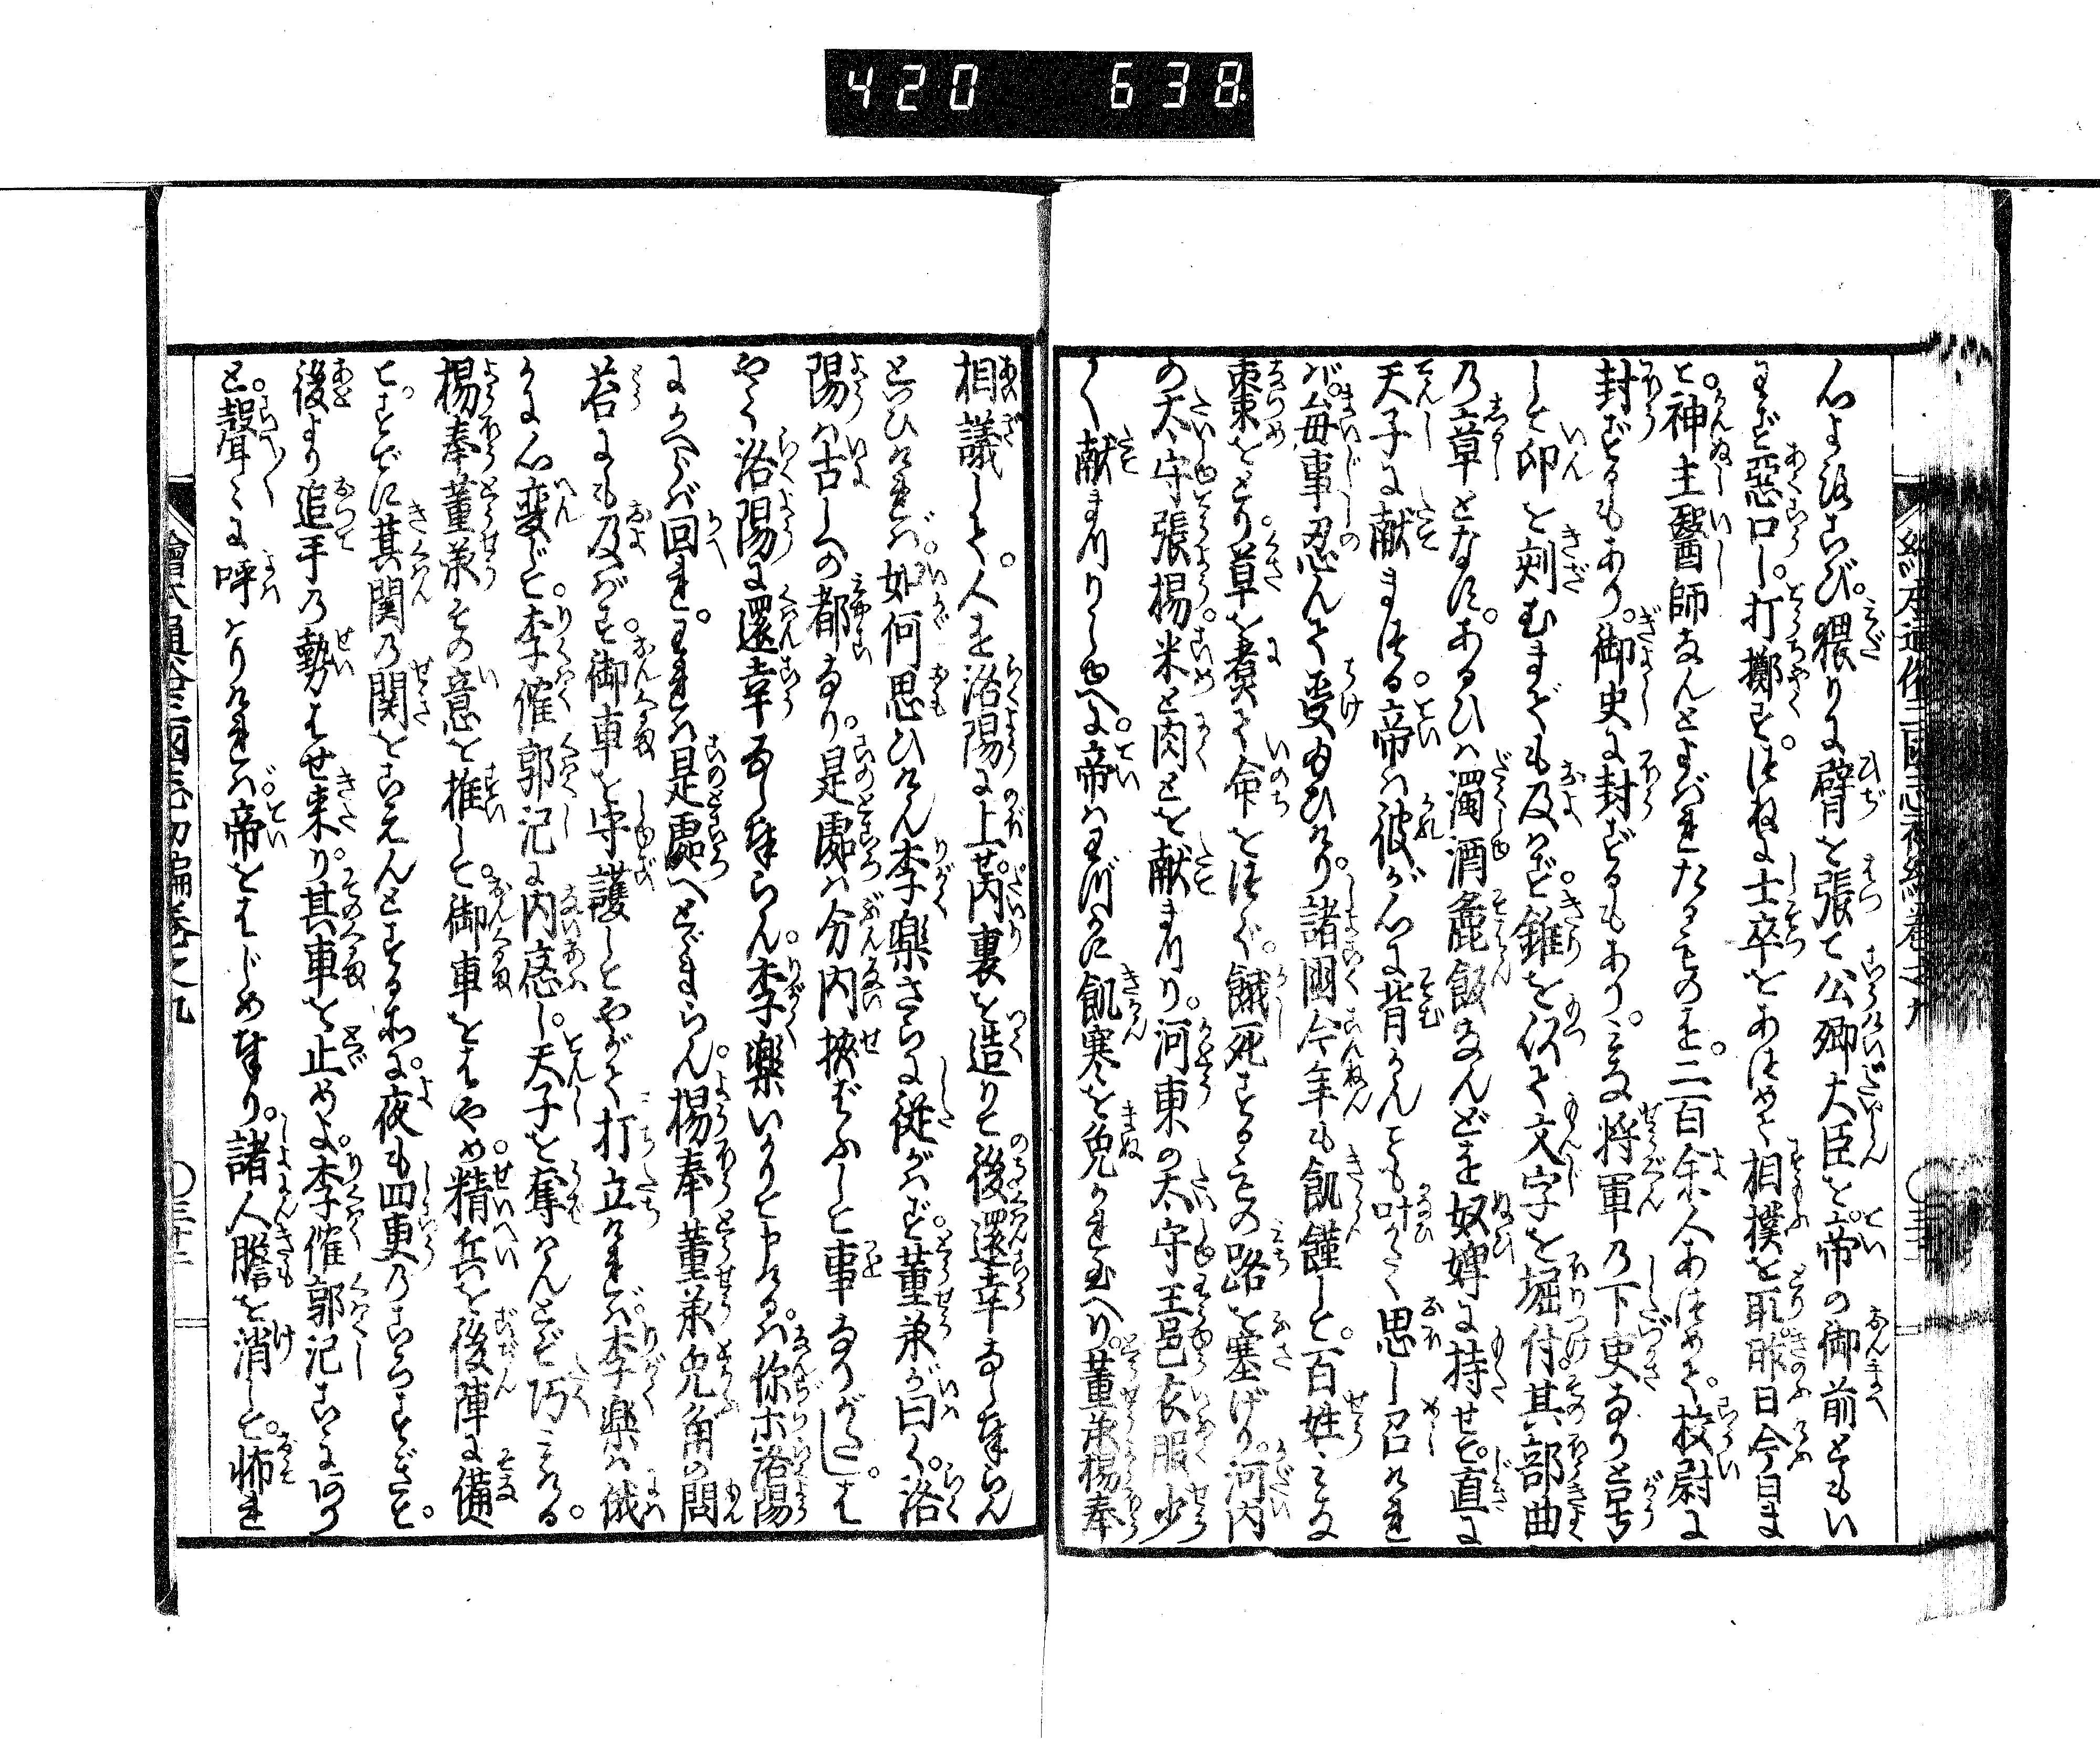 420 638.
心よ誇るび。猥りよ臂を張て公卿大臣を。帝の御前ともい
はず惡口し。打擲す。つねに士卒をあつめて相撲を取。昨日今日ま
で。神主醫師なんとよばれたるものを。二百余人あつめて。校尉に
封ずるもあり。御史に封ずるもあり。みな將軍の下吏なりと号
して印を刻むまでも及ばず。錐を以て文字を堀付。其部曲
乃章となす。あるひハ濁酒麁飯なんどを奴婢に持せて。直に
天子に献まつる。帝ハ彼が心に背かんことも叶がたく思し召けれ
バ。毎事忍んで受給ひけり。諸國今年も飢饉して。百姓みな
棗をとり。草を煮て命をつぐ。餓死するもの路を塞げり。河内
の太守張楊米と肉とを献まつり。河東の太守王邑衣服少し
く献まつりしゆへに。帝ハわづかに飢寒を免かれ玉へり。董承楊奉
相議して。人を洛陽に上せ。内裏を造りて後還幸なし奉らん
といひけれバ。如何思ひけん李樂さらに従がはず。董承が曰く。洛
陽ハ古しへの都なり。是處ハ分内挾ばふして事なりがたし。は
やく洛陽に還幸なし奉らん。李樂いかりて申けるハ。你ホ洛陽
にかへらバ回れ。われハ是處へとゞまらん。楊奉董承兎角の問
荅にも及ばず。御車を守護してやがて打立けれバ。李樂ハ俄
かに心變じ。李傕郭汜に内應し。天子を奪はんとぞ巧みける。
楊奉董承その意を推して。御車をはやめ。精兵を後陣に備へ
て。すでに箕関乃関をこえんとする所に。夜も四更乃ころすぎて。
後より追手乃勢はせ来り。其車を止めよ。李傕郭汜こゝにあり
と。聲〳〵に呼はりけれバ。帝をはじめ奉り。諸人膽を消して。怖れ
繪本通俗三國志初編巻之九
〇三十二